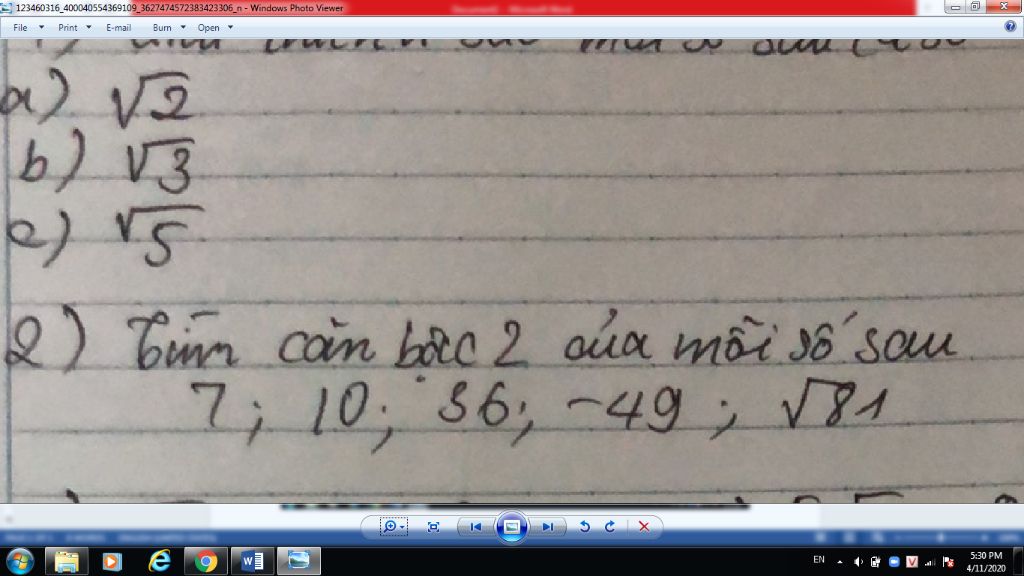 123460316_400040554369109_3627474572383423306_n - Windows Photo Viewer
File Print E-mail Burn Open
a) √2
b) √3
c) √5
2) Tìm căn bậc 2 của mỗi số sau
7; 10; 36; -49; √81
EN
5:30 PM
4/11/2020